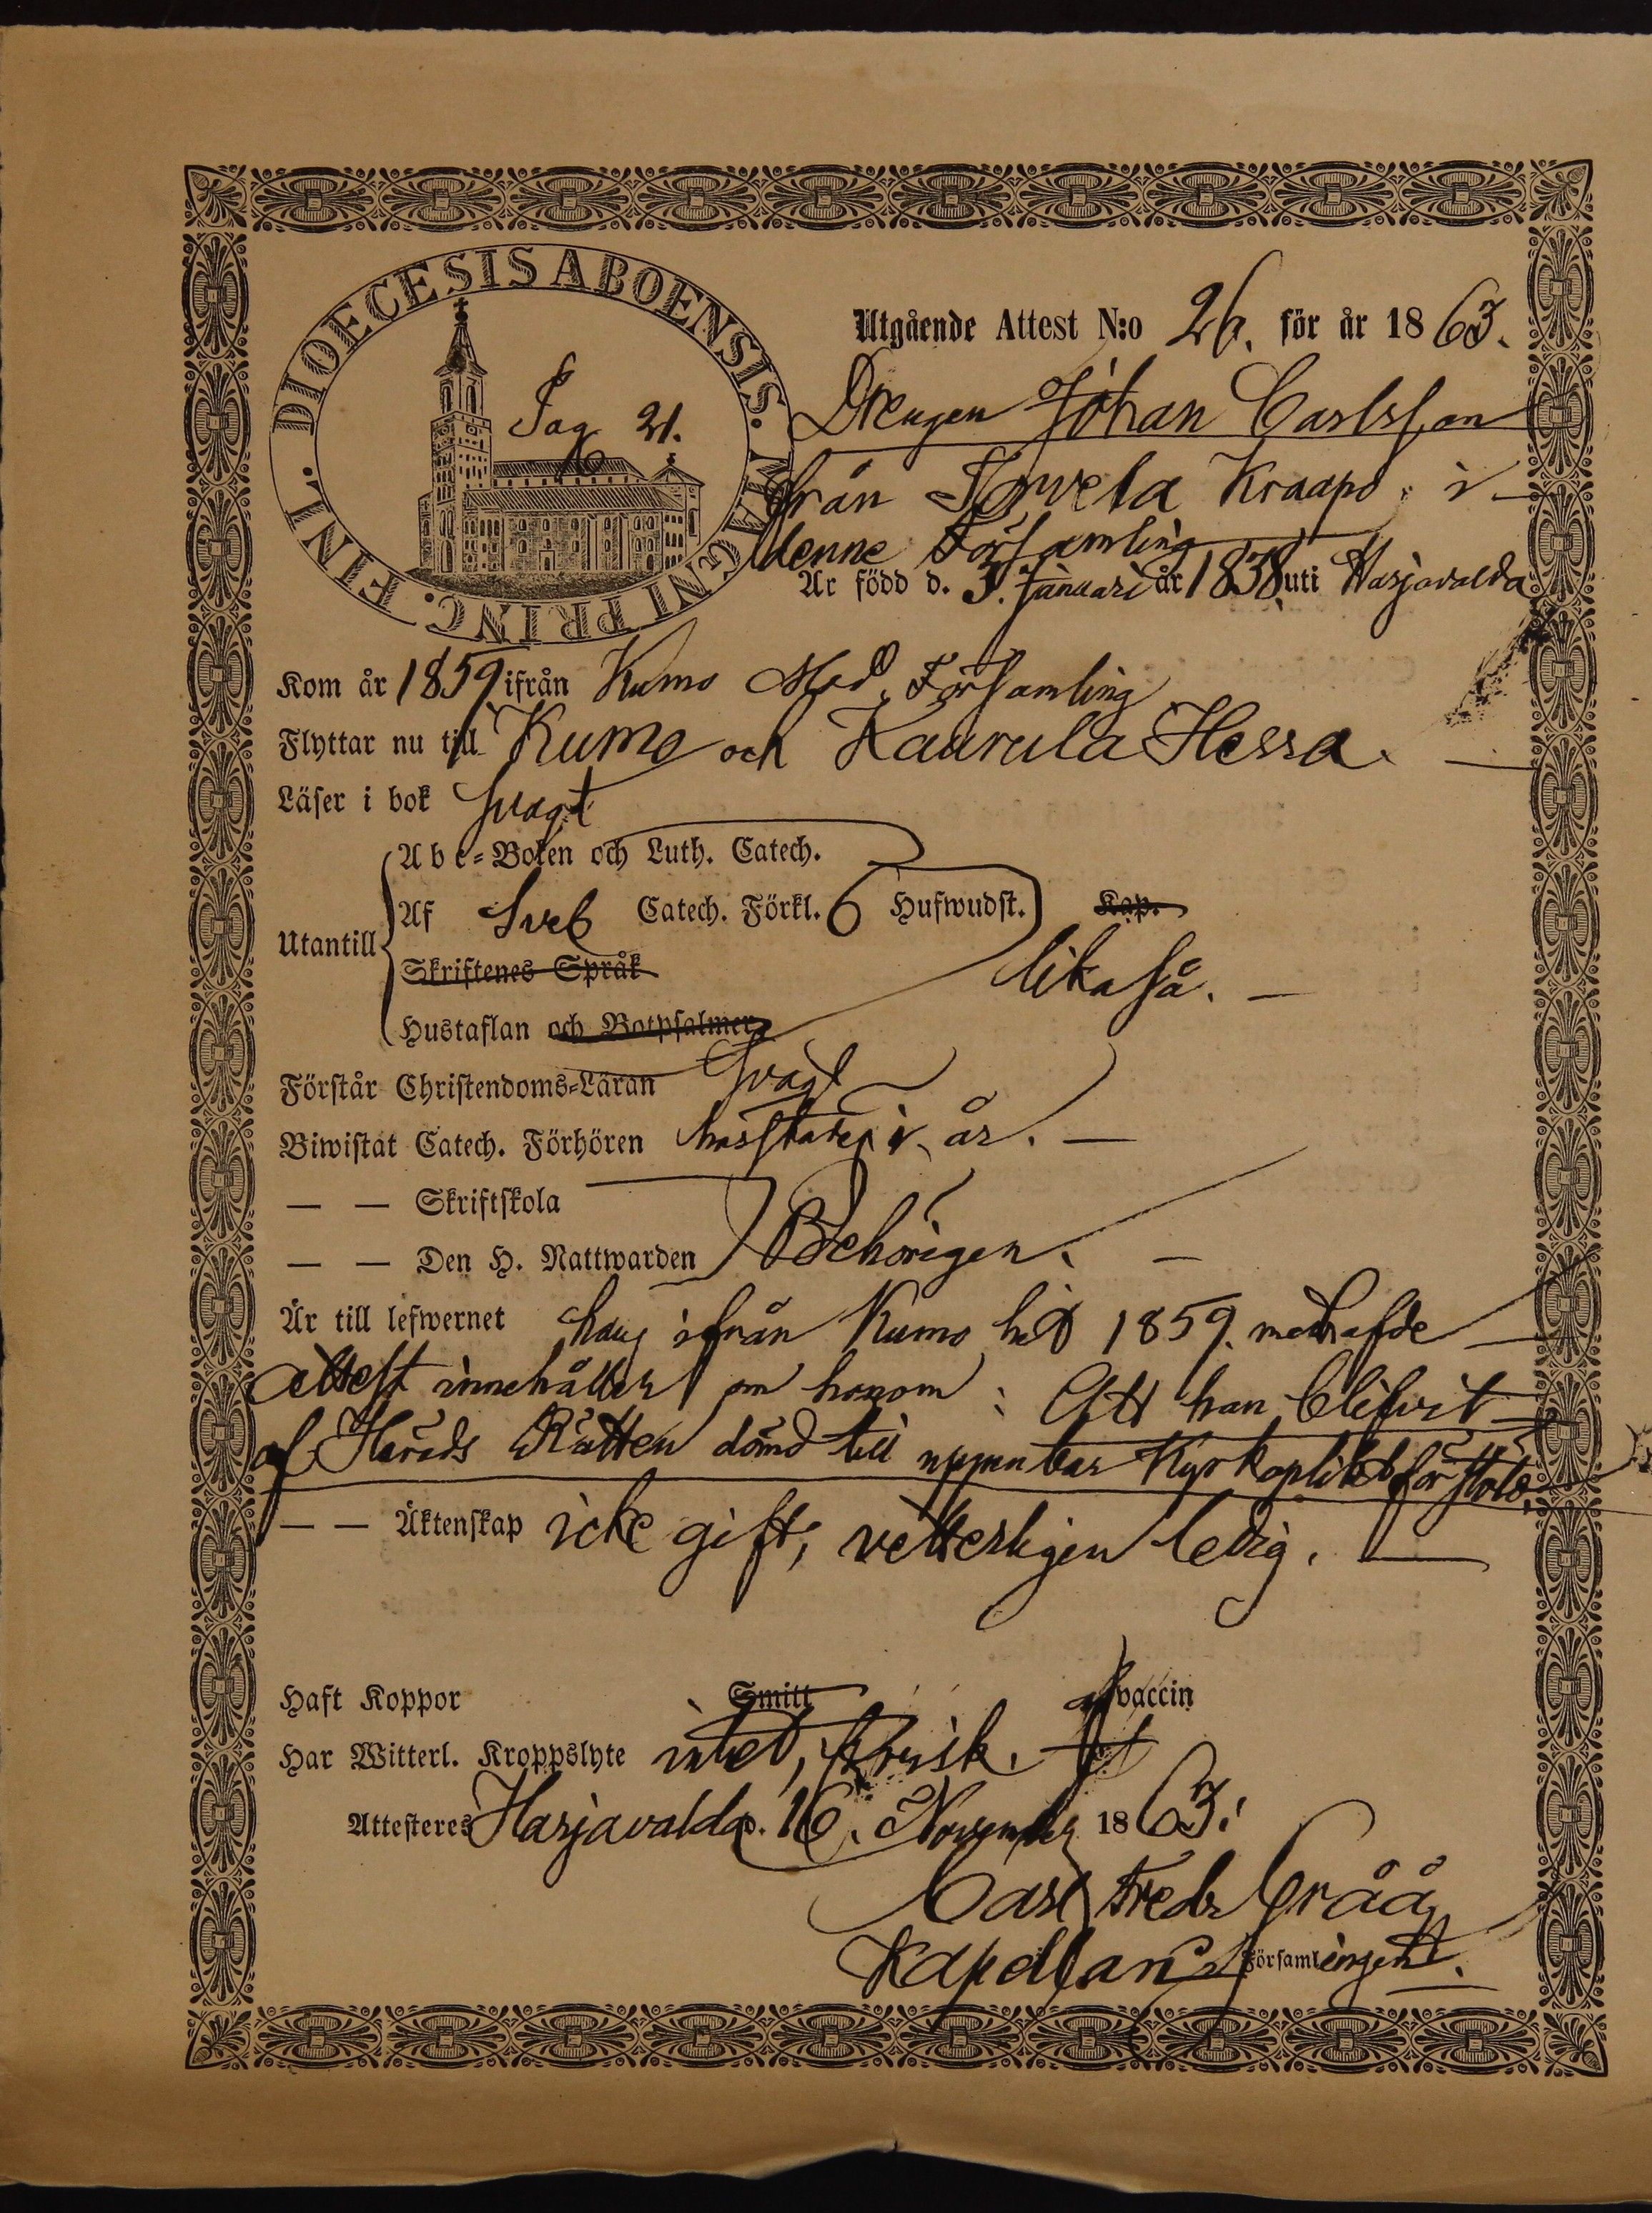 DIOECESIS ABOENSIS. MAGNI PRINC. FINL.
Pag 21.
Utgående Attest N:o 26. för år 1863.
Drengen Johan Carlsson
från Torvela Kraapo i
denne Församling
Är född d. 3. Januari år 1838 uti Harjavalda
Kom år 1859 ifrån Kumo Mod. Församling
Flyttar nu till Kumo och Kaurula Hessa.
Läser i bok svagt
Utantill
Abc-Boken och Luth. Catech.
Af Sveb Catech. Förkl. 6 Hufwudst. Kap.
Skriftenes Språk
Hustaflan och Botpsalmer
likaså.
Förstår Christendoms-Läran Svagt
Biwistat Catech. Förhören i år.
— — Skriftskola
— — Den H. Nattwarden Behörigen.
Är till lefwernet hans ifrån Kumo hit 1859. medhafde
attest innehåller om honom: Att han blifvit
af Härads Rätten dömd till uppenbar Kyrkoplikt för stöld.
— — Äktenskap icke gift, vetterligen ledig.
Haft Koppor Smitt af vaccin
Har Witterl. Kroppslyte intet, frisk.
Attesteres Harjavalda d. 16. November 1863.
Carl Fredr Gråå
Kapellan i Församlingen.